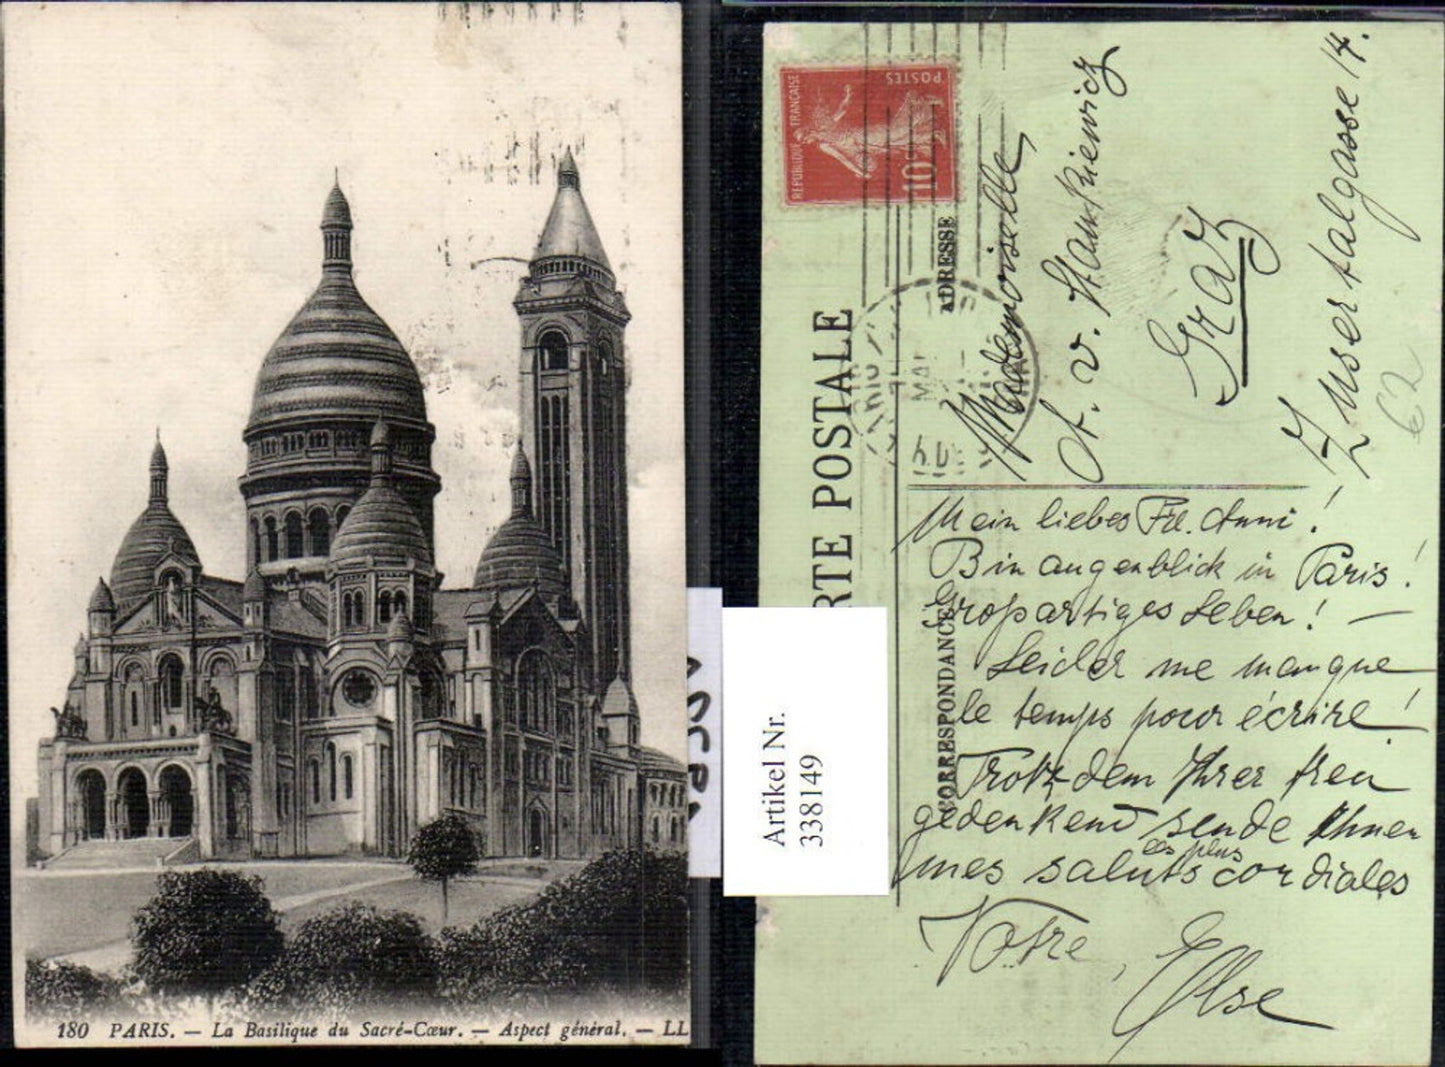 180 PARIS. — La Basilique du Sacré-Cœur. — Aspect général. — LL
Artikel Nr.
338149
CARTE POSTALE
CORRESPONDANCE
ADRESSE
REPUBLIQUE FRANÇAISE
POSTES
10c
PARIS
Mademoiselle,
A. v. Stankiewicz
Graz
Zusertalgasse 14.
Mein liebes Frl. Anni!
Bin augenblick in Paris!
Großartiges Leben! —
Leider me manque
le temps pour écrire!
Trotzdem Ihrer treu
gedenkend sende Ihnen
mes saluts les plus cordiales
Votre,
Else
62